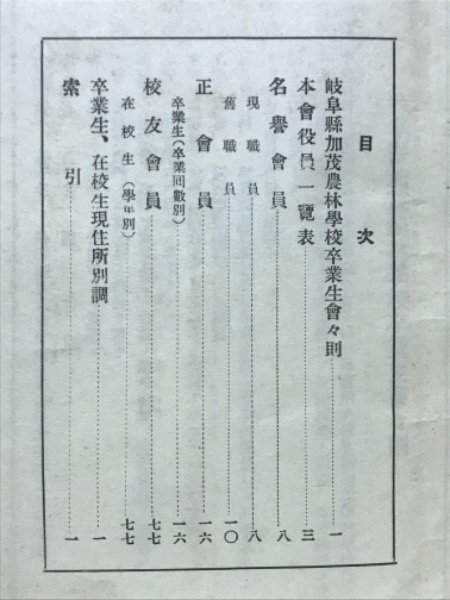 目次
岐阜縣加茂農林學校卒業生會々則 一
本會役員一覽表 三
名譽會員 八
現職員 八
舊職員 一〇
正會員 一六
卒業生（卒業回數別） 一六
校友會員 七七
在校生（學年別） 七七
卒業生、在校生現住所別調 一
索引 一